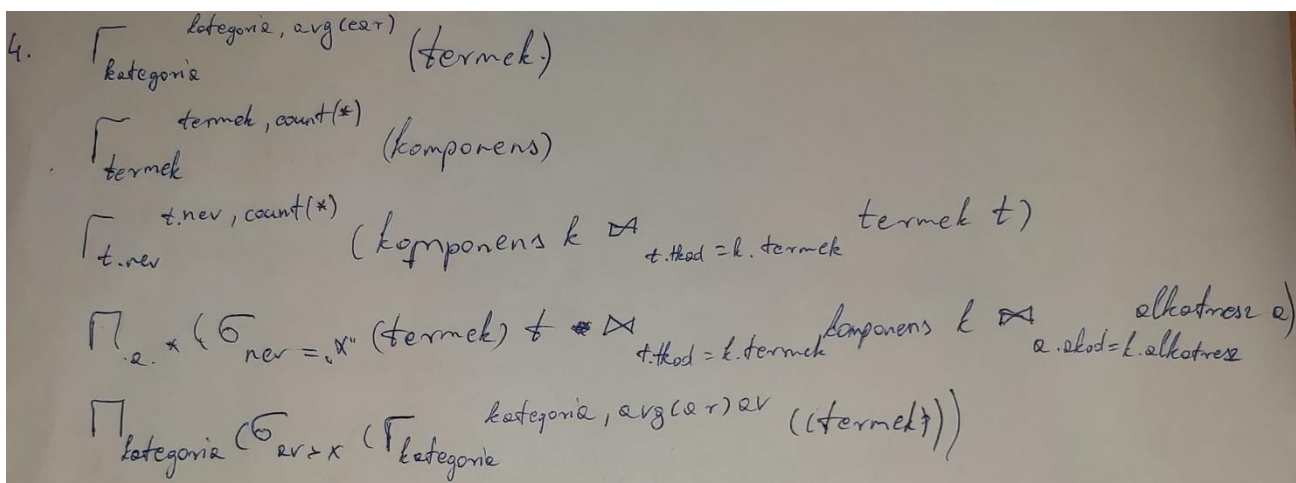 4. Γ kategoria kategoria, avg(ear) (termek)
Γ termek termek, count(*) (komponens)
Γ t.nev t.nev, count(*) (komponens k ⋈ t.tkod = k.termek termek t)
Π a.* (σ nev = „X" (termek) t ⋈ t.tkod = k.termek komponens k ⋈ a.akod = k.alkatresz alkatresz a)
Π kategoria (σ av > x (Γ kategoria kategoria, avg(ar) av ((termek))))